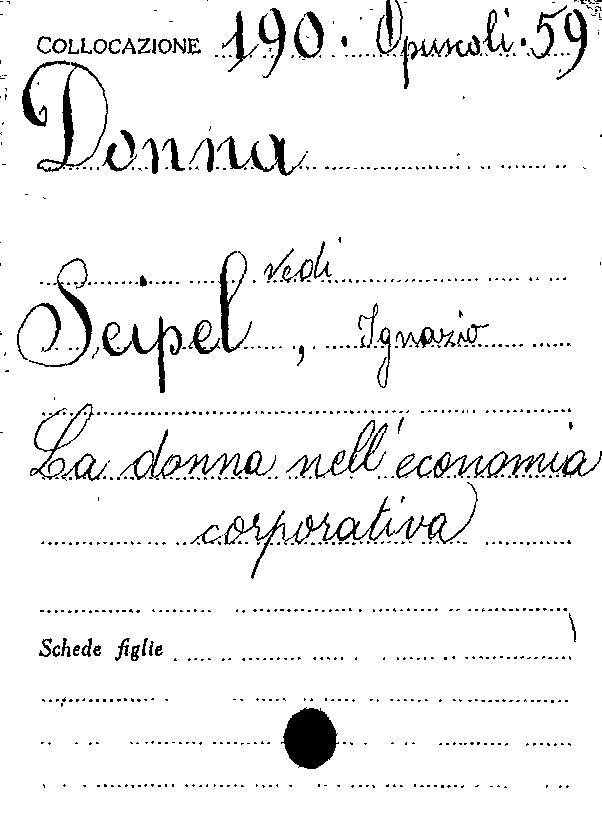 COLLOCAZIONE 190. Opuscoli. 59
Donna
vedi
Seipel, Ignazio
La donna nell'economia
corporativa
Schede figlie